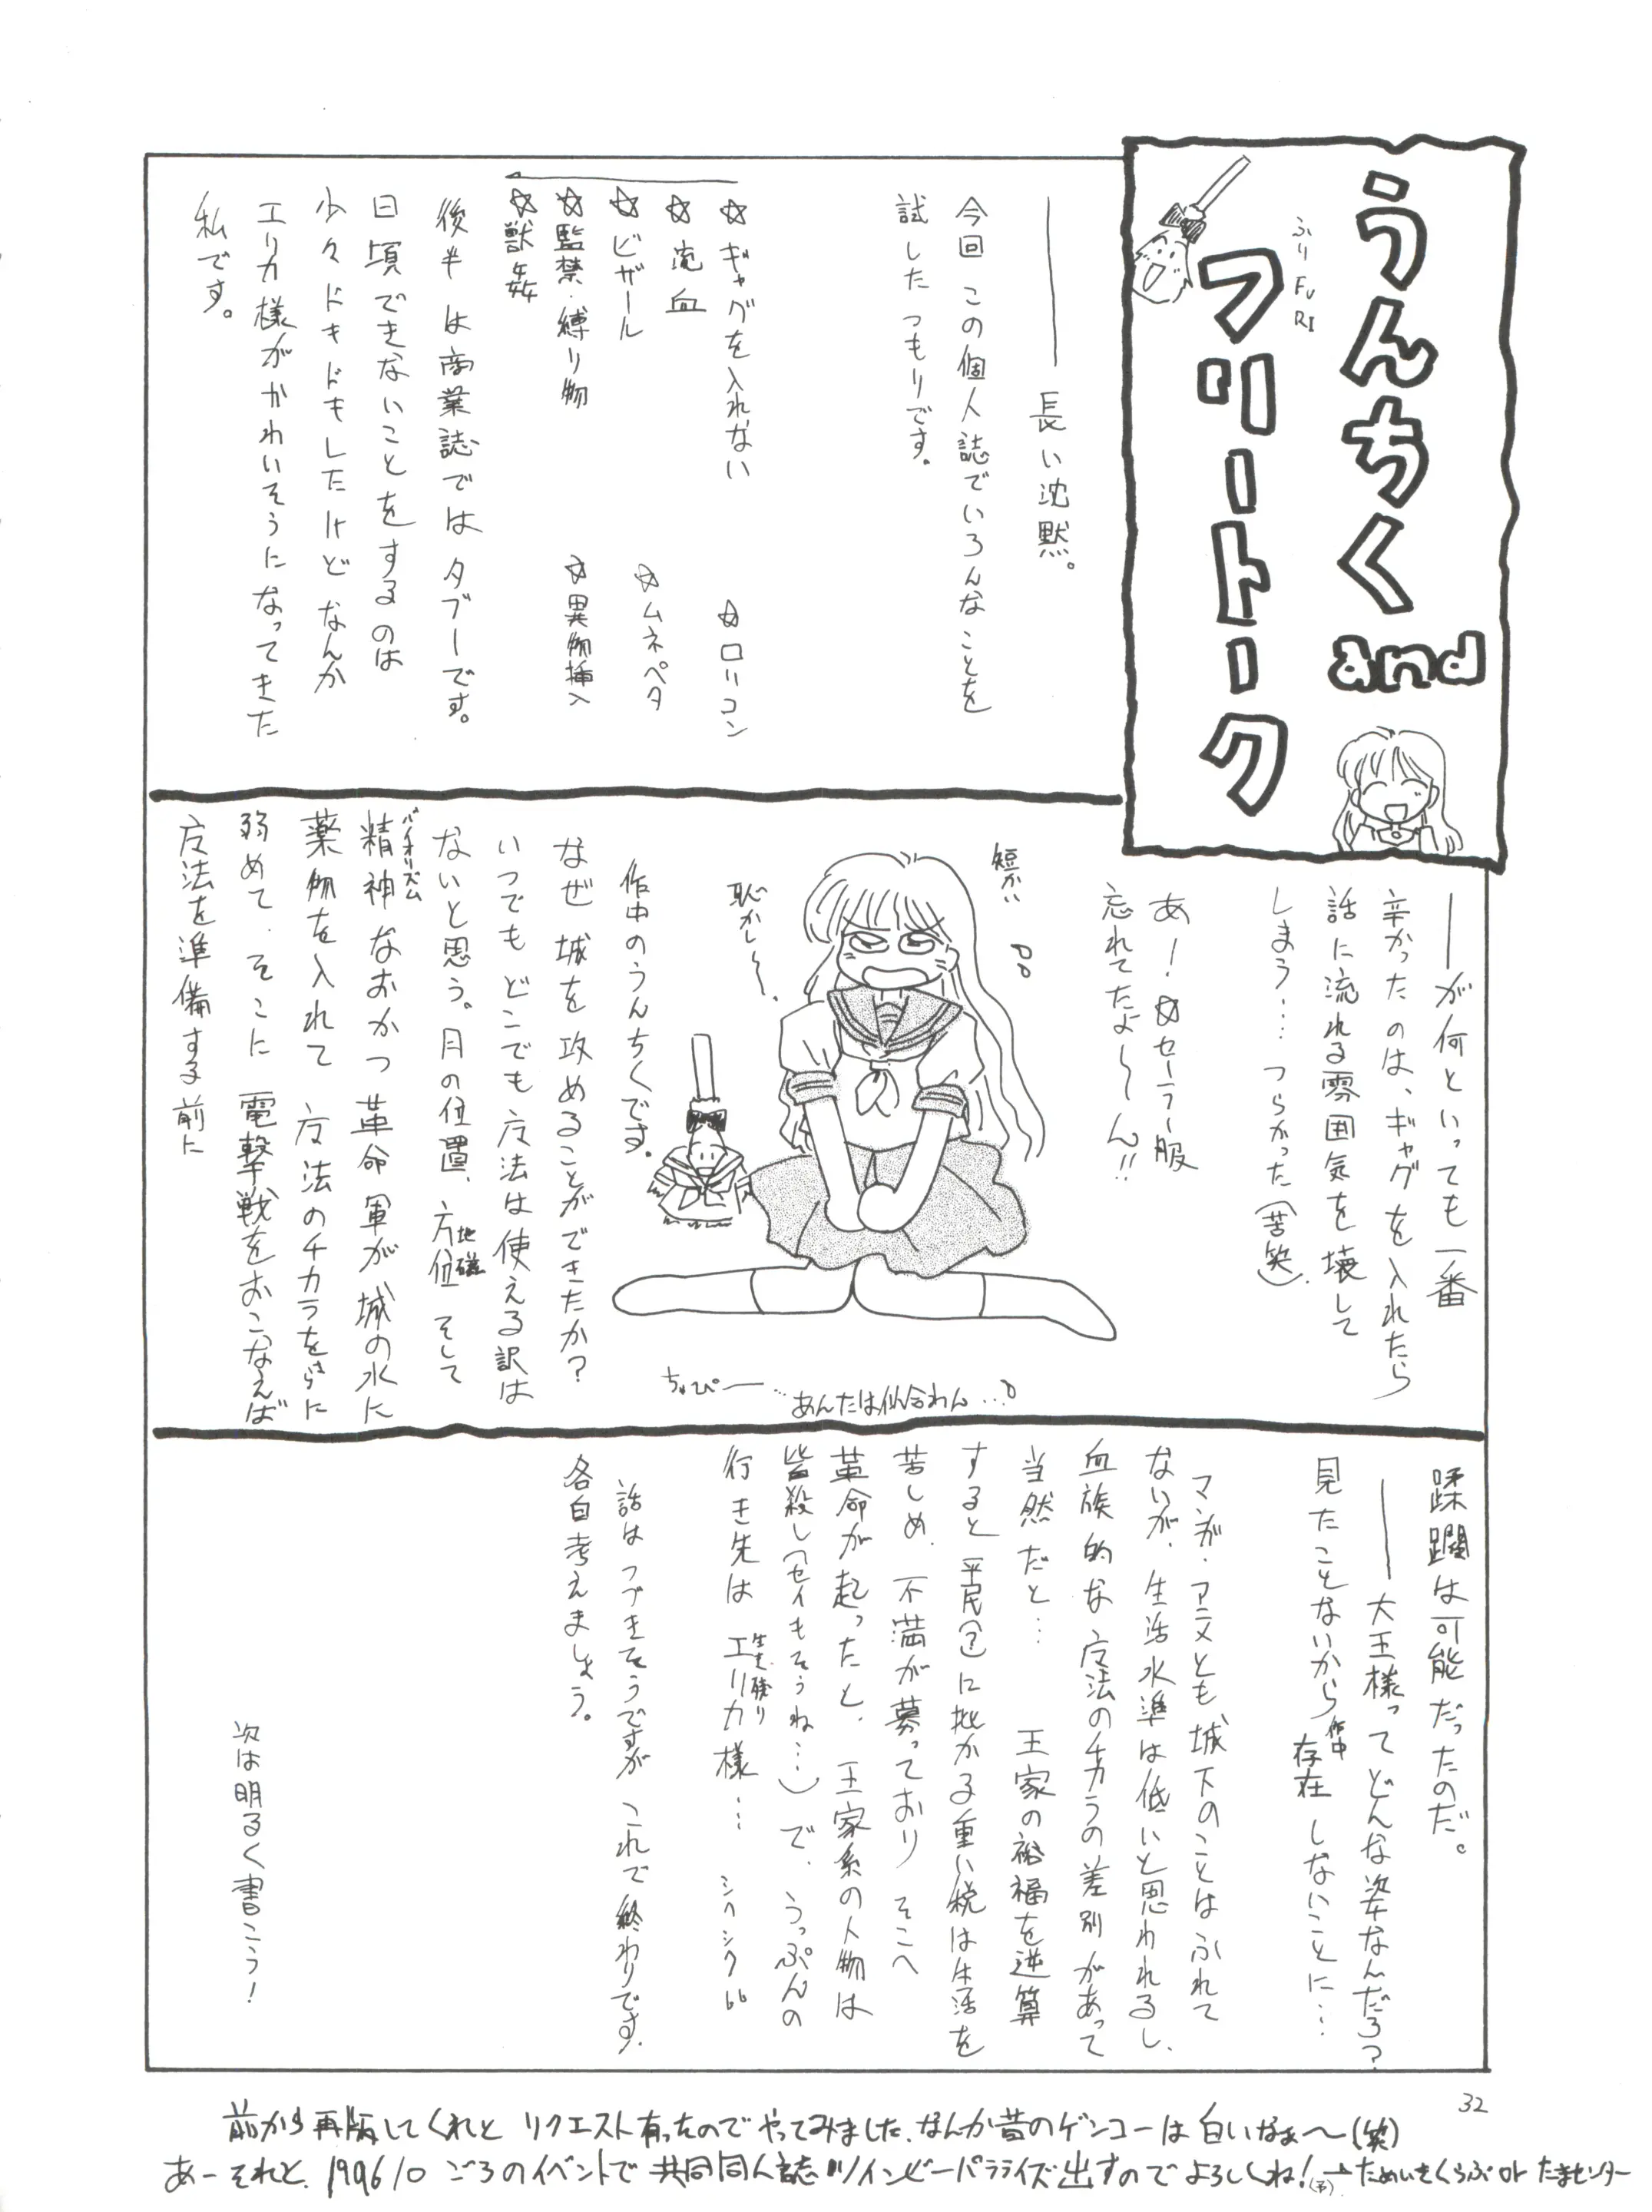 うんちく
and
フリートーク
ふりFuRI
――長い沈黙。
今回 この個人誌でいろんなことを
試した つもりです。
☆ギャグを入れない ☆ロリコン
☆流血
☆ビザール ☆ムネペタ
☆監禁・縛り物 ☆異物挿入
☆獣姦
後半は商業誌ではタブーです。
日頃できないことをするのは
少々ドキドキしたけど なんか
エリカ様がかわいそうになってきた
私です。
――が何といっても一番
辛かったのは、ギャグを入れたら
話に流れる雰囲気を壊して
しまう… つらかった(苦笑)。
あ！☆セーラー服
忘れてたよ～～ん!!
短かい
恥かし～。
ちゃぴー…
あんたは似合わん…
作中のうんちくです。
なぜ城を攻めることができたか？
いつでもどこでも 魔法は使える訳は
ないと思う。月の位置、方位 地磁 そして
精神 バイオリズム なおかつ 革命軍が城の水に
薬物を入れて 魔法のチカラをさらに
弱めて、そこに 電撃戦をおこなえば
魔法を準備する前に
蹂躙は可能だったのだ。
――大王様ってどんな姿なんだろ？
見たことないから 作中存在しないことに…
マンガ・アニメとも城下のことは ふれて
ないが、生活水準は低いと思われるし、
血族的な 魔法のチカラの差別があって
当然だと… 王家の裕福を逆算
すると 平民(?)に掛かる重い税は生活を
苦しめ、不満が募っており そこへ
革命が起ったと、王家系の人物は
皆殺し(セイもそうね…)で、うっぷんの
行き先は 生き残り エリカ様… シクシク
話はつづきそうですが これで終わりです。
各自考えましょう。
次は明るく書こう！
32
前から再販してくれと リクエスト有ったのでやってみました、なんか昔のゲンコーは白いなぁ～(笑)
あーそれと、1996 10ごろのイベントで 共同同人誌ツインビーパラライズ出すのでよろしくね！(予)→ためいきくらぶ or たまセンター